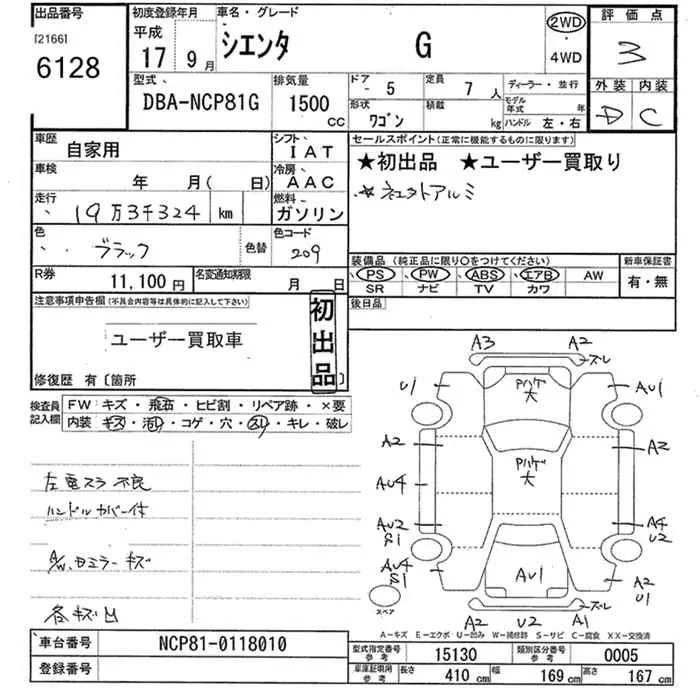 出品番号 初度登録年月 車名・グレード 2WD 評価点
[2166] 平成
6128 17年 9月 シエンタ G ・4WD 3
型式 排気量 ドア - 5 定員 7人 ディーラー・並行 外装 内装
DBA-NCP81G 1500cc 形状 ワゴン 積載 kg モデル年式 年 ハンドル 左・右 D C
車歴 自家用 シフト IAT セールスポイント(正常に機能するものに限ります)
車検 年 月( 日) 冷房 AAC ★初出品 ★ユーザー買取り
走行 19万3千324 km 燃料 ガソリン
色 ブラック 色替 色コード 209
装備品(純正品に限り○をつけてください) 新車保証書
R券 11,100円 名変通知期限 月 日 PS ・ PW ・ ABS ・ エアB ・ AW 有・無
SR ナビ TV カワ
注意事項申告欄(不具合内容等は具体的に記入して下さい) 初出品 後日品
ユーザー買取車
修復歴 有〔箇所
検査員記入欄 FW キズ・飛石・ヒビ割・リペア跡・×要
内装 キズ・汚れ・コゲ・穴・スレ・キレ・破レ
左電スラ不良
ハンドルカバー付
A/W、ミラーキズ
各キズ凹
A3 A2
ズレ
U1 Pハゲ大 AU1
A2 A2
Pハゲ大
AU4
AU2 S1 A4 U2
AU4 S1 AU1 A2 U1
スペア ズレ
A2 U2 A1
A-キズ E-エクボ U-凹み W-補修跡 S-サビ C-腐食 XX-交換済
車台番号 NCP81-0118010 型式指定番号 参考 15130 類別区分番号 参考 0005
登録番号 車庫証明用 参考 長さ 410 cm 幅 169 cm 高さ 167 cm